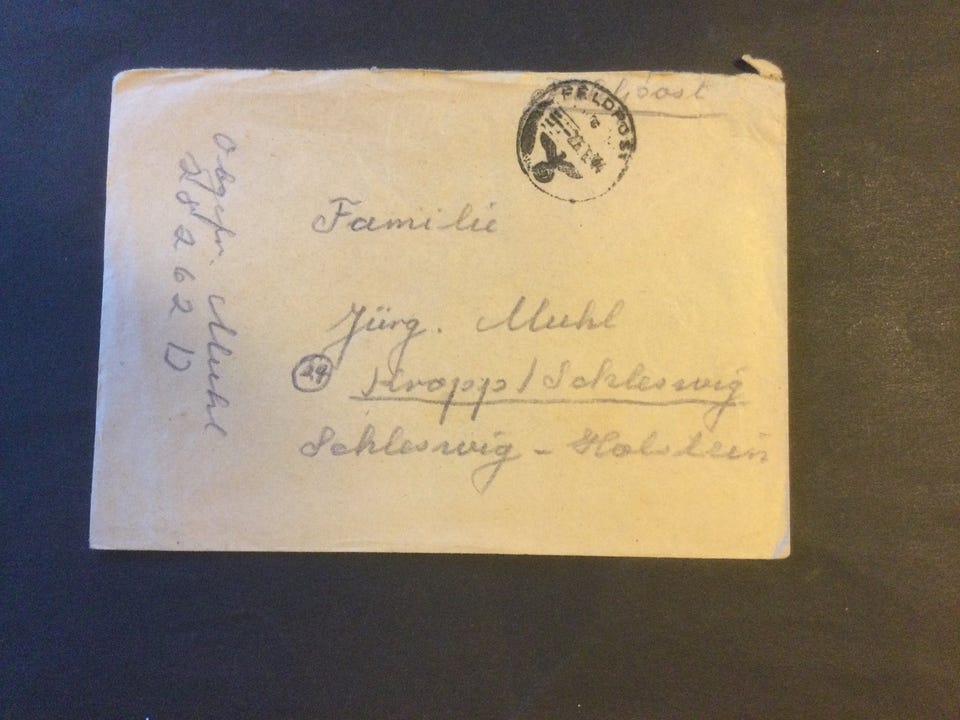 Feldpost
FELDPOST
Familie
Jürg. Muhl
24 Kropp / Schleswig
Schleswig - Holstein
Obgefr. Muhl
28262 D